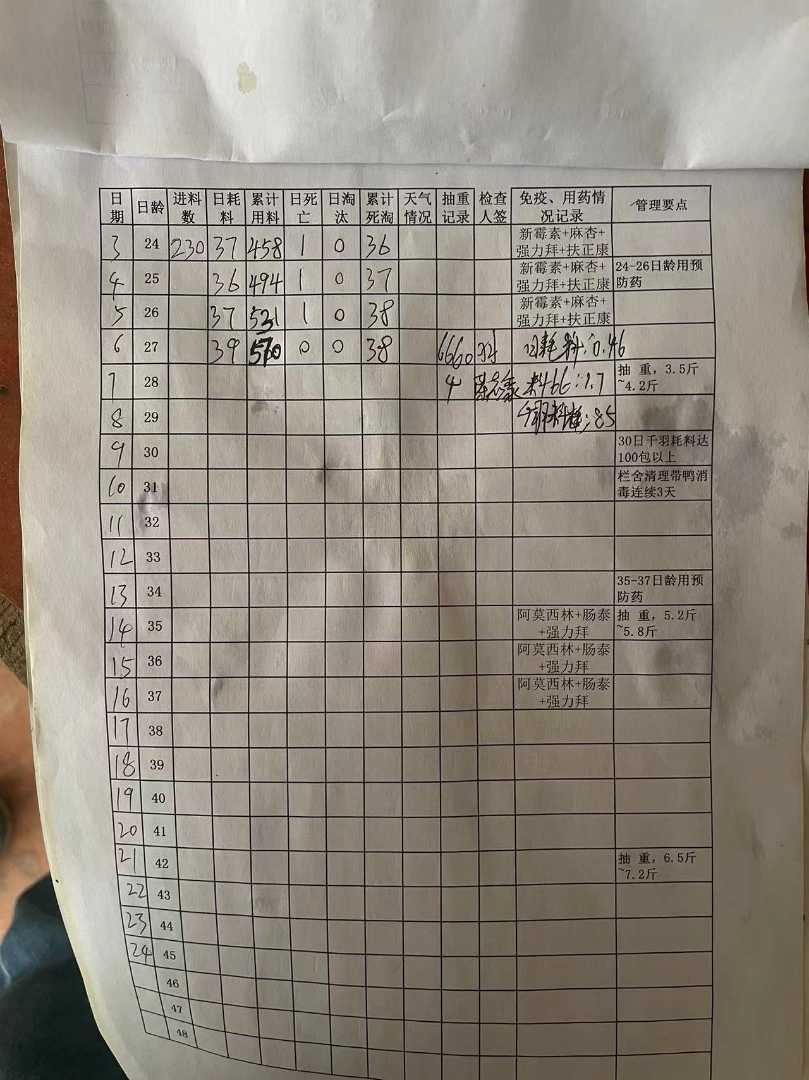 日期 日龄 进料数 日耗料 累计用料 日死亡 日淘汰 累计死淘 天气情况 抽重记录 检查人签 免疫、用药情况记录 管理要点
3 24 230 37 458 1 0 36 新霉素+麻杏+强力拜+扶正康
4 25 36 494 1 0 37 新霉素+麻杏+强力拜+扶正康 24-26日龄用预防药
5 26 37 531 1 0 38 新霉素+麻杏+强力拜+扶正康
6 27 39 570 0 0 38 6660羽 日耗料:0.46
7 28 4 料比:1.7 抽 重,3.5斤~4.2斤
8 29 料耗:85
9 30 30日千羽耗料达100包以上
10 31 栏舍清理带鸭消毒连续3天
11 32
12 33
13 34 35-37日龄用预防药
14 35 阿莫西林+肠泰+强力拜 抽 重,5.2斤~5.8斤
15 36 阿莫西林+肠泰+强力拜
16 37 阿莫西林+肠泰+强力拜
17 38
18 39
19 40
20 41
21 42 抽 重,6.5斤~7.2斤
22 43
23 44
24 45
46
47
48